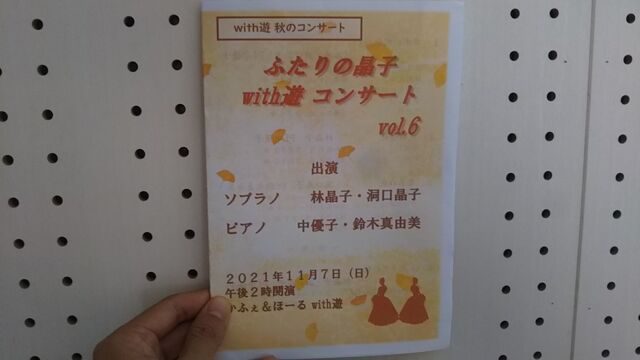 with遊 秋のコンサート
ふたりの晶子
with遊 コンサート
vol.6
出演
ソプラノ 林晶子・洞口晶子
ピアノ 中優子・鈴木真由美
2021年11月7日（日）
午後2時開演
かふぇ＆ほーる with遊